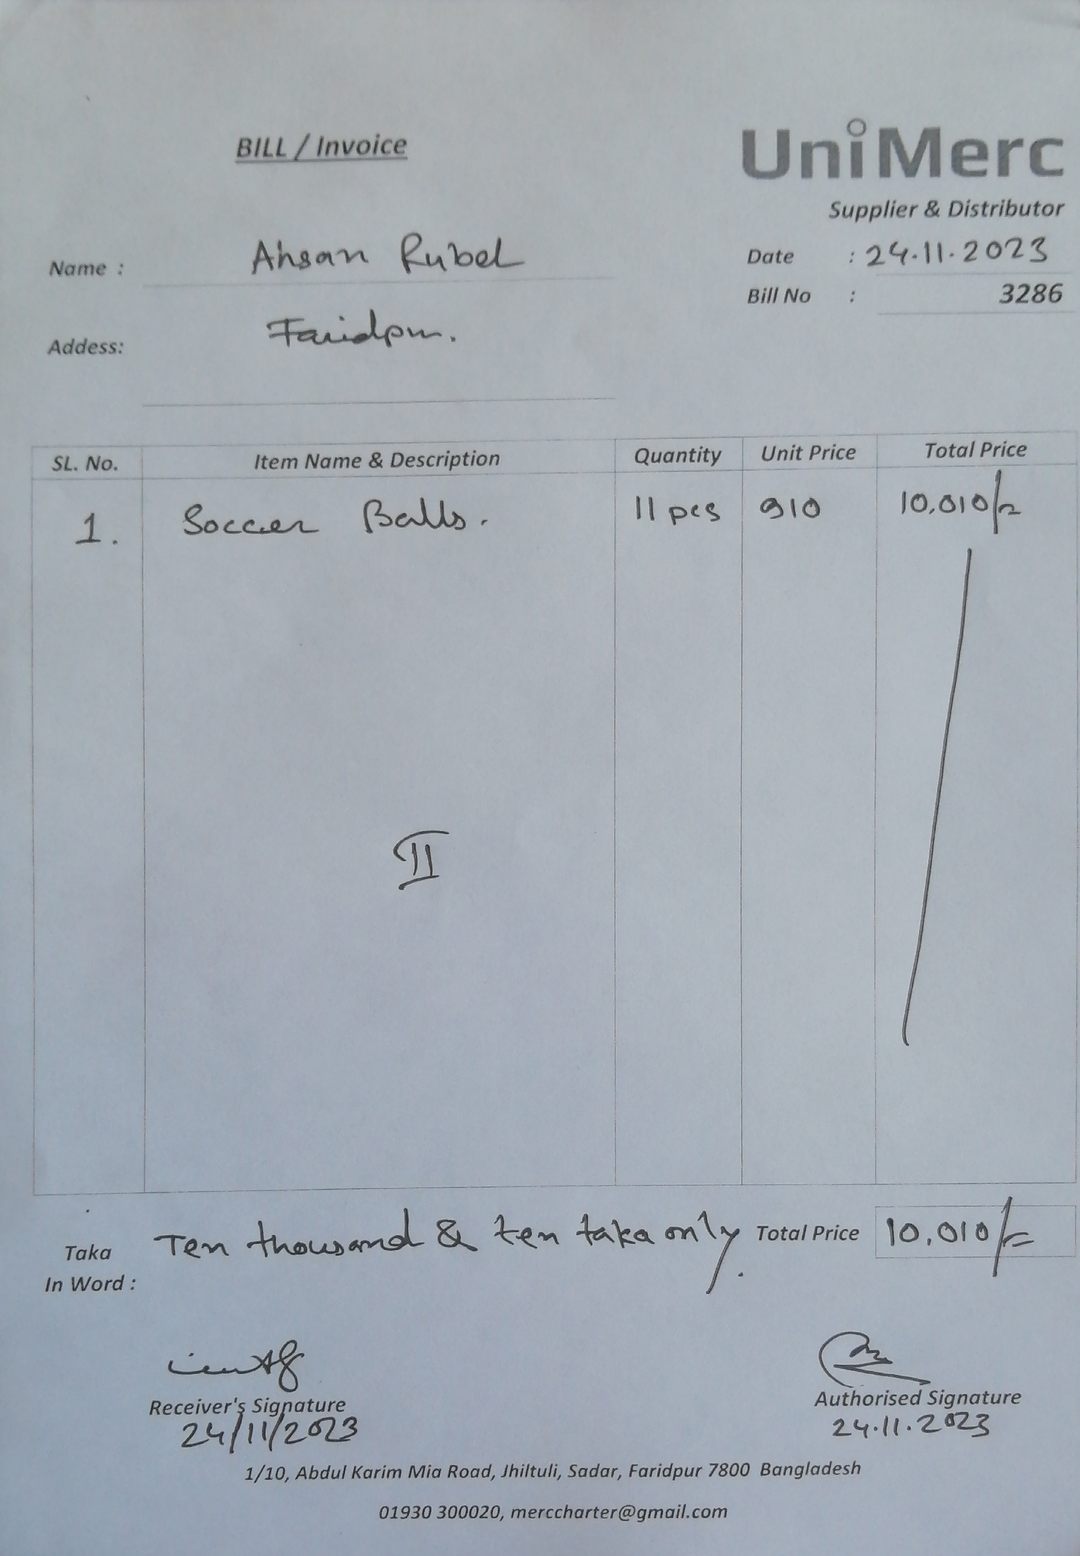 BILL / Invoice
UniMerc
Supplier & Distributor
Name : Ahsan Rubel
Date : 24.11.2023
Bill No : 3286
Addess: Faridpur.
SL. No. Item Name & Description Quantity Unit Price Total Price
1. Soccer Balls. 11 pcs 910 10,010/=
II
Taka In Word : Ten thousand & ten taka only. Total Price 10,010/=
Receiver's Signature Authorised Signature
24/11/2023 24.11.2023
1/10, Abdul Karim Mia Road, Jhiltuli, Sadar, Faridpur 7800 Bangladesh
01930 300020, merccharter@gmail.com